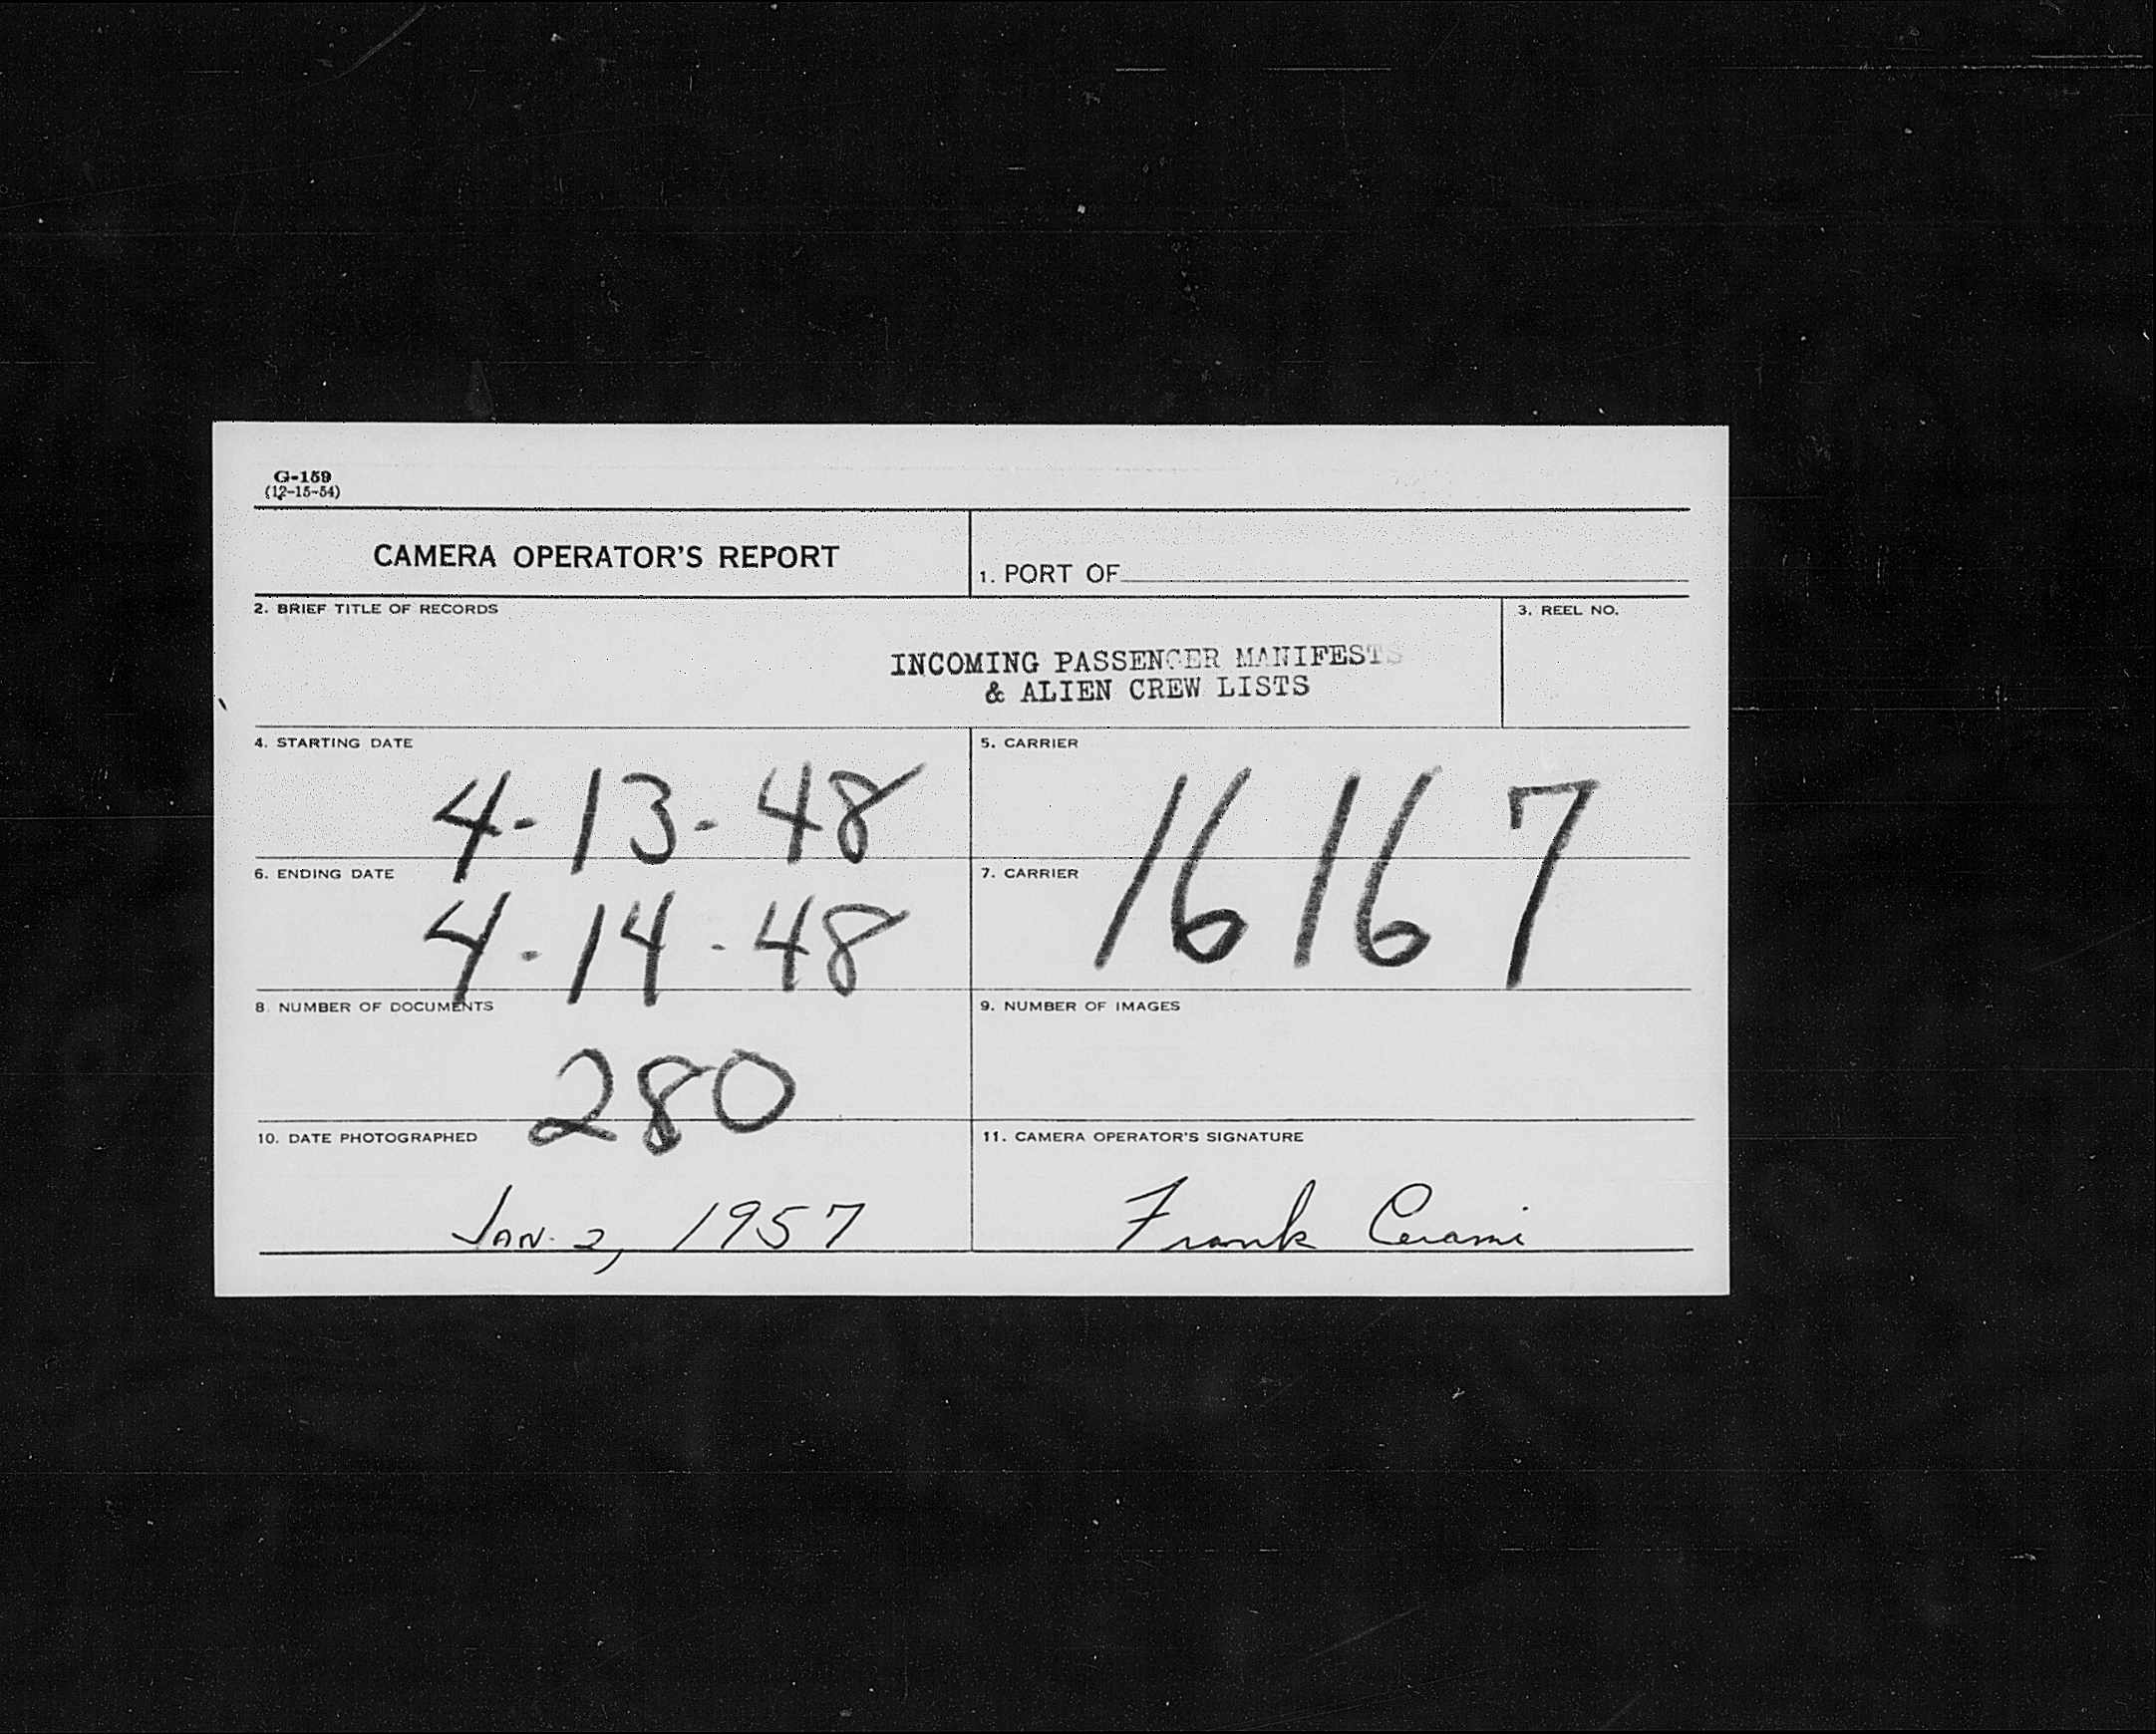 G-159
(12-15-54)
CAMERA OPERATOR'S REPORT
1. PORT OF
2. BRIEF TITLE OF RECORDS
3. REEL NO.
INCOMING PASSENGER MANIFESTS
& ALIEN CREW LISTS
4. STARTING DATE
4-13-48
5. CARRIER
16167
6. ENDING DATE
4-14-48
7. CARRIER
8. NUMBER OF DOCUMENTS
280
9. NUMBER OF IMAGES
10. DATE PHOTOGRAPHED
JAN. 2, 1957
11. CAMERA OPERATOR'S SIGNATURE
Frank Cerami